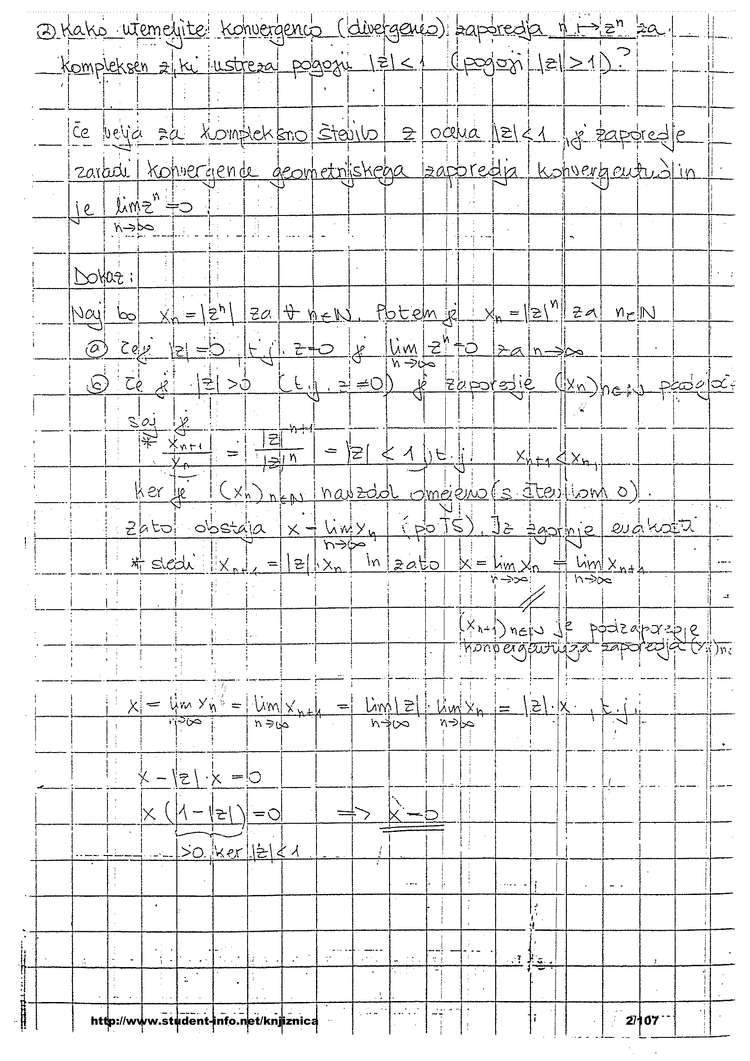 ② Kako utemeljite konvergenco (divergenco) zaporedja n ↦ zⁿ za
kompleksen z, ki ustreza pogoju |z| < 1 (pogoji |z| > 1)?
Če velja za kompleksno število z ocena |z| < 1, je zaporedje
zaradi konvergence geometrijskega zaporedja konvergentno in
je lim zⁿ = 0
n→∞
Dokaz:
Naj bo xₙ = |zⁿ| za ∀ n∈N. Potem je xₙ = |z|ⁿ za n∈N
ⓐ če je |z| = 0, t.j. z = 0 je lim zⁿ = 0 za n→∞
n→∞
ⓑ če je |z| > 0 (t.j. z ≠ 0) je zaporedje (xₙ)n∈N
saj je
* xₙ₊₁/xₙ = |z|ⁿ⁺¹/|z|ⁿ = |z| < 1, t.j. xₙ₊₁ < xₙ,
ker je (xₙ)n∈N navzdol omejeno (s številom 0).
zato obstaja x = lim xₙ (po IS). Iz zgornje enakosti
n→∞
* sledi xₙ₊₁ = |z|·xₙ in zato x = lim xₙ = lim xₙ₊₁
n→∞ n→∞
(xₙ₊₁)n∈N je podzaporedje
konvergentnega zaporedja (xₙ)n∈
x = lim xₙ = lim xₙ₊₁ = lim |z| · lim xₙ = |z|·x, t.j.
n→∞ n→∞ n→∞ n→∞
x − |z|·x = 0
x (1 − |z|) = 0 ⟹ x = 0
>0 ker |z| < 1
http://www.student-info.net/knjiznica 2/107